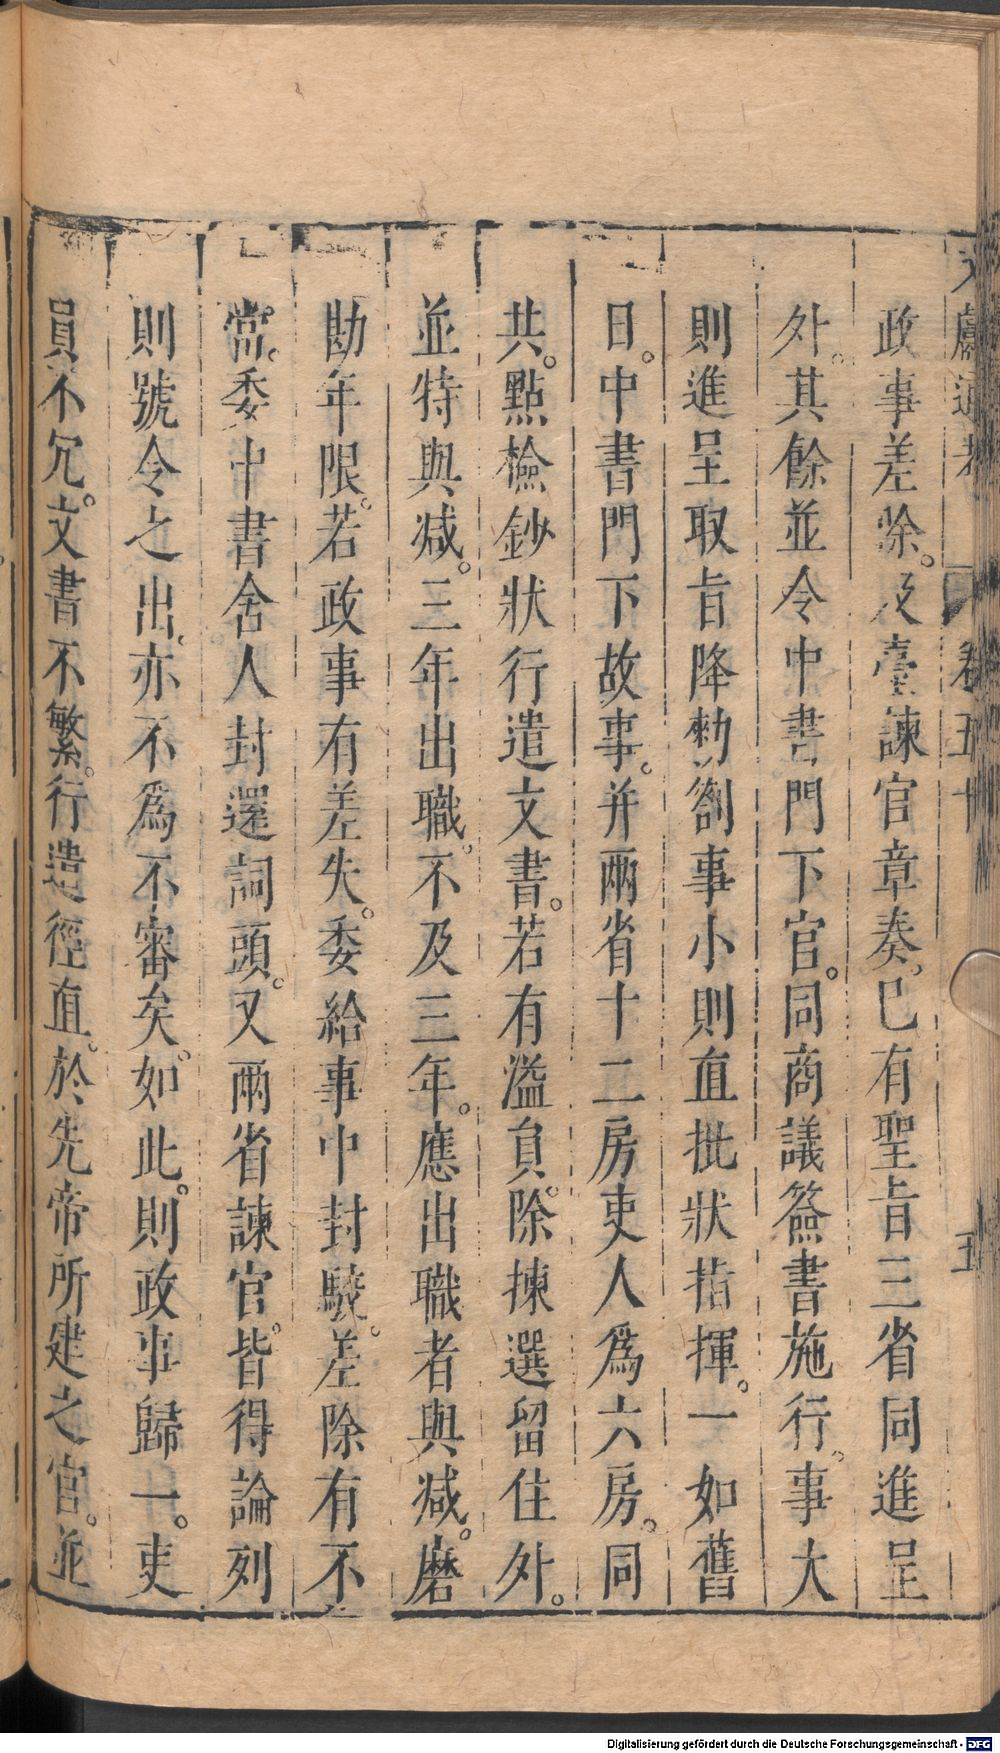 文獻通考 卷五十 五
政事差除。及臺諫官章奏。已有聖旨三省同進呈
外。其餘並令中書門下官。同商議簽書施行。事大
則進呈取旨降勑劄事小則直批狀指揮。一如舊
日。中書門下故事。并兩省十二房吏人爲六房。同
共。點檢鈔狀行遣文書。若有溢員。除揀選留住外。
並特與減。三年出職。不及三年。應出職者與減。磨
勘年限。若政事有差失。委給事中封駮。差除有不
當。委中書舍人封還詞頭。又兩省諫官。皆得論列
則號令之出。亦不爲不審矣。如此。則政事歸一。吏
員不冗。文書不繁。行遣徑直。於先帝所建之官。並
Digitalisierung gefördert durch die Deutsche Forschungsgemeinschaft - DFG